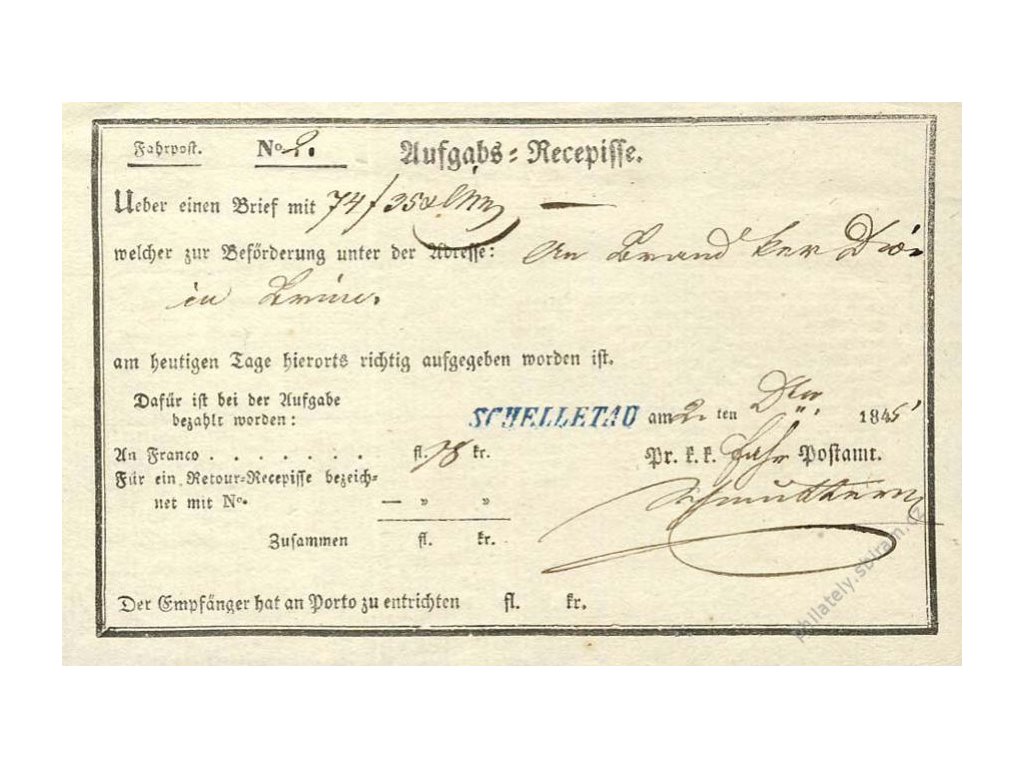 Fahrpost. No. 2. Aufgabs=Recepisse.
Ueber einen Brief mit 74/
welcher zur Beförderung unter der Adresse: An
in
am heutigen Tage hierorts richtig aufgegeben worden ist.
Dafür ist bei der Aufgabe
bezahlt worden:
SCHELLETAU am 2 ten 1845
An Franco . . . . . . . fl. 18 kr. Pr. k. k. Fahr Postamt.
Für ein Retour=Recepisse bezeich=
net mit No. — „ „
Zusammen fl. kr.
Der Empfänger hat an Porto zu entrichten fl. kr.
philately.sbiram.cz